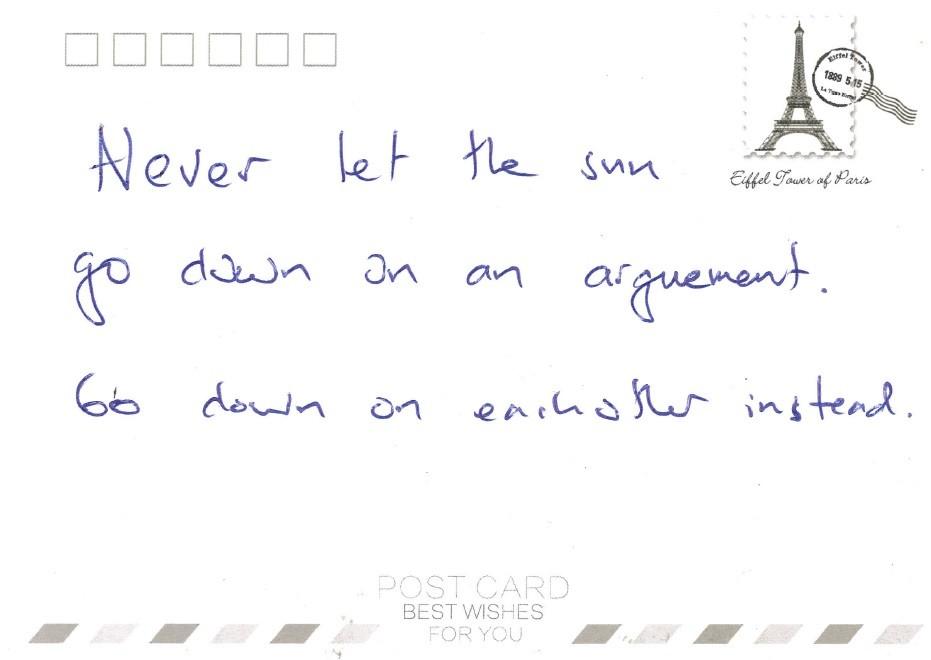 Eiffel Tower
1889 5.15
Eiffel Tower of Paris
Never let the sun
go down on an arguement.
Go down on eachother instead.
POST CARD
BEST WISHES
FOR YOU